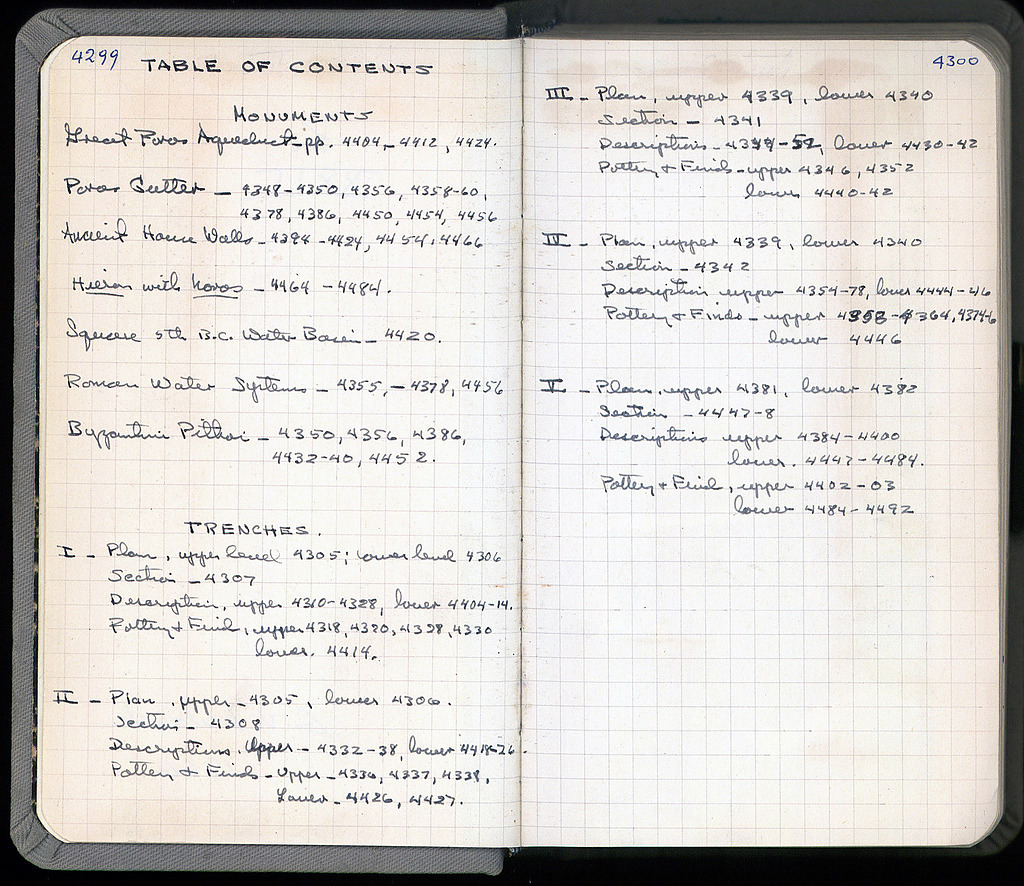 4299
TABLE OF CONTENTS
MONUMENTS
Great Poros Aqueduct - pp. 4404 - 4412, 4424.
Poros Gutter - 4348-4350, 4356, 4358-60,
4378, 4386, 4450, 4454, 4456
Ancient House Walls - 4394 - 4424, 4454, 4466
Hieron with horos - 4464 - 4484.
Square 5th B.C. Water Basin - 4420.
Roman Water Systems - 4355, - 4378, 4456
Byzantine Pithoi - 4350, 4356, 4386,
4432-40, 4452.
TRENCHES.
I - Plan, upper level 4305; lower level 4306
Section - 4307
Description, upper 4310-4328, lower 4404-14.
Pottery + Find, upper 4318, 4320, 4328, 4330
lower. 4414.
II - Plan, upper - 4305, lower 4306.
Section - 4308
Descriptions. Upper - 4332-38, lower 4418-26.
Pottery + Finds - Upper - 4336, 4337, 4338,
Lower - 4426, 4427.
4300
III - Plan, upper 4339, lower 4340
Section - 4341
Descriptions - 4344-52, lower 4430-42
Pottery + Finds - upper 4346, 4352
lower 4440-42
IV - Plan, upper 4339, lower 4340
Section - 4342
Description upper 4354-78, lower 4444-46
Pottery + Finds - upper 4358-4364, 4374-6
lower 4446
V - Plan, upper 4381, lower 4382
Section - 4447-8
Descriptions upper 4384-4400
lower. 4447-4484.
Pottery + Find, upper 4402-03
lower 4484-4492